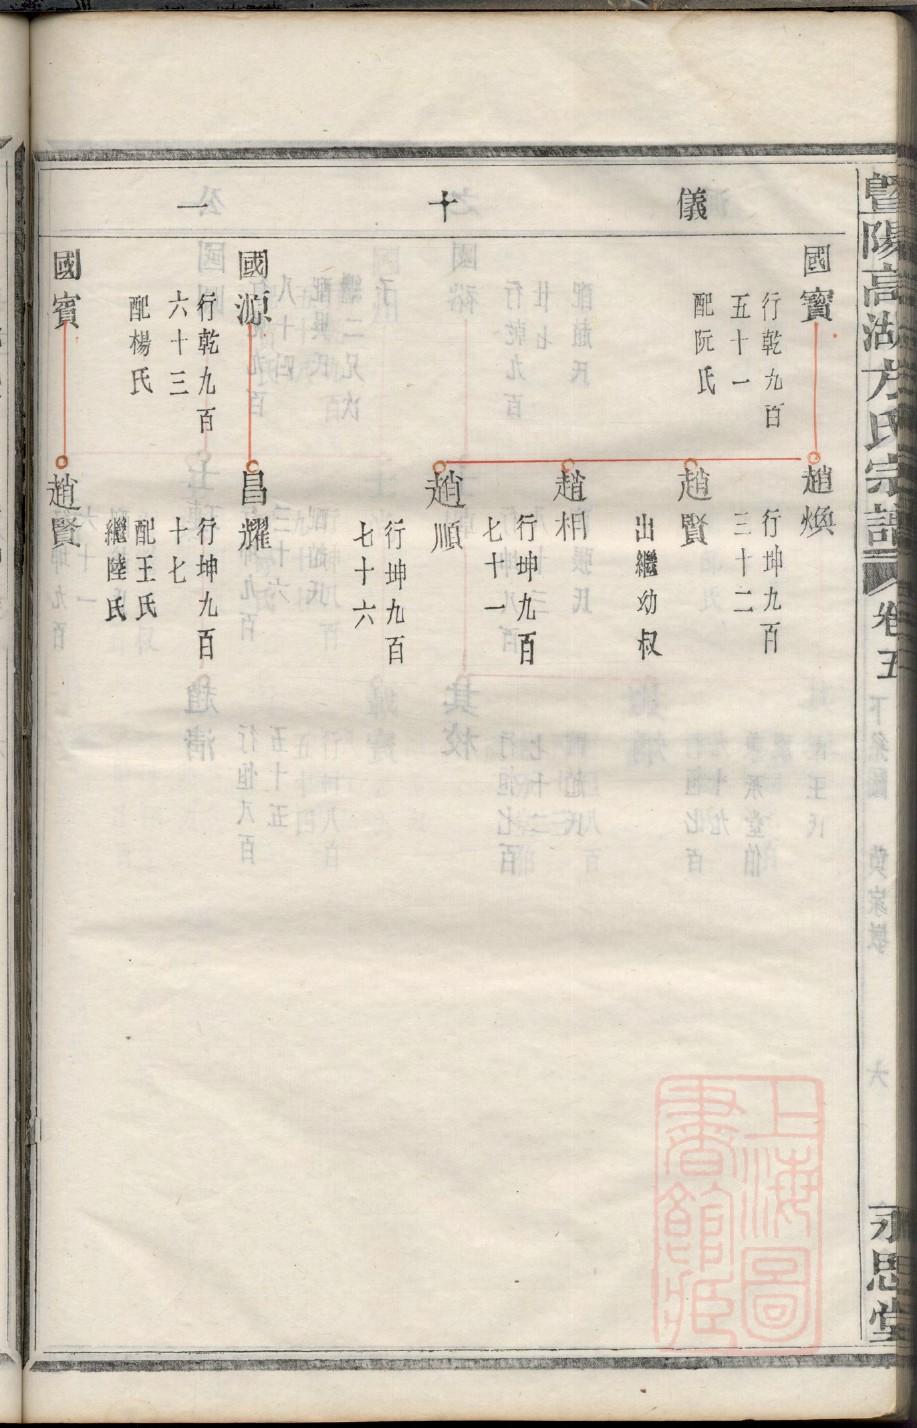 暨陽高湖方氏宗譜
卷五
永思堂
儀十一
國寶
行乾九百
五十一
配阮氏
趙煥
行坤九百
三十二
趙賢
出繼幼叔
趙相
行坤九百
七十一
趙順
行坤九百
七十六
國源
行乾九百
六十三
配楊氏
昌耀
行坤九百
十七
配王氏
繼陸氏
國賓
趙賢
上海圖
書館藏